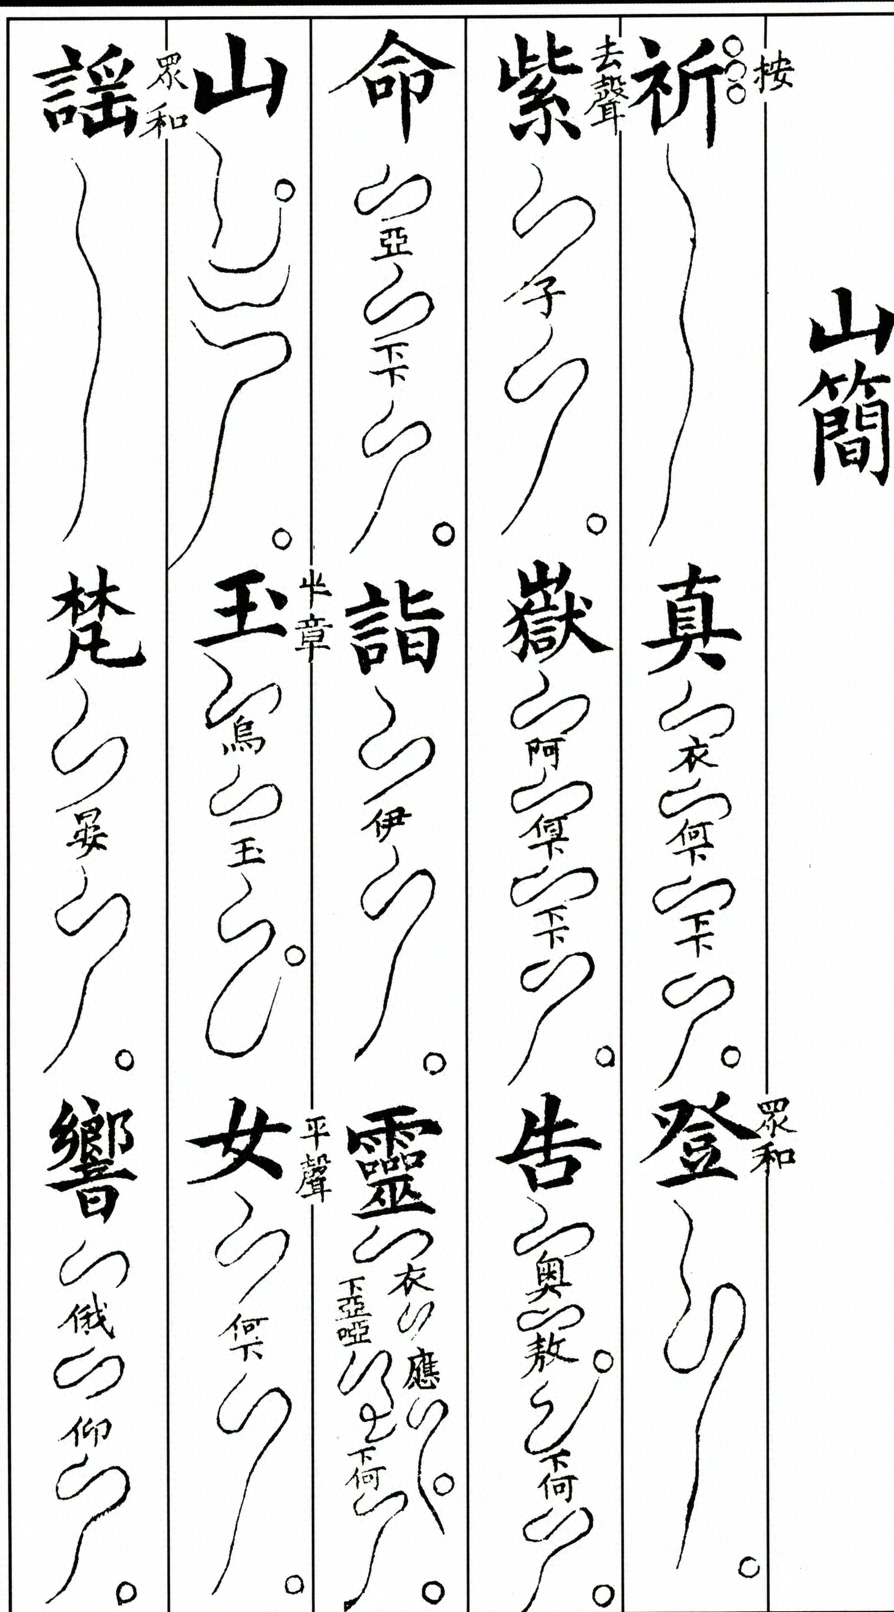 山簡
按 祈 真 衣 何下 下下 登 眾和
紫 去聲 子 嶽 阿 何下 下下 告 奧 敖 下何
命 亞 下下 詣 伊 靈 衣 應 下亞 啞 下何
山 玉 半章 烏 玉 女 平聲 何下
謠 眾和 梵 晏 響 俄 仰